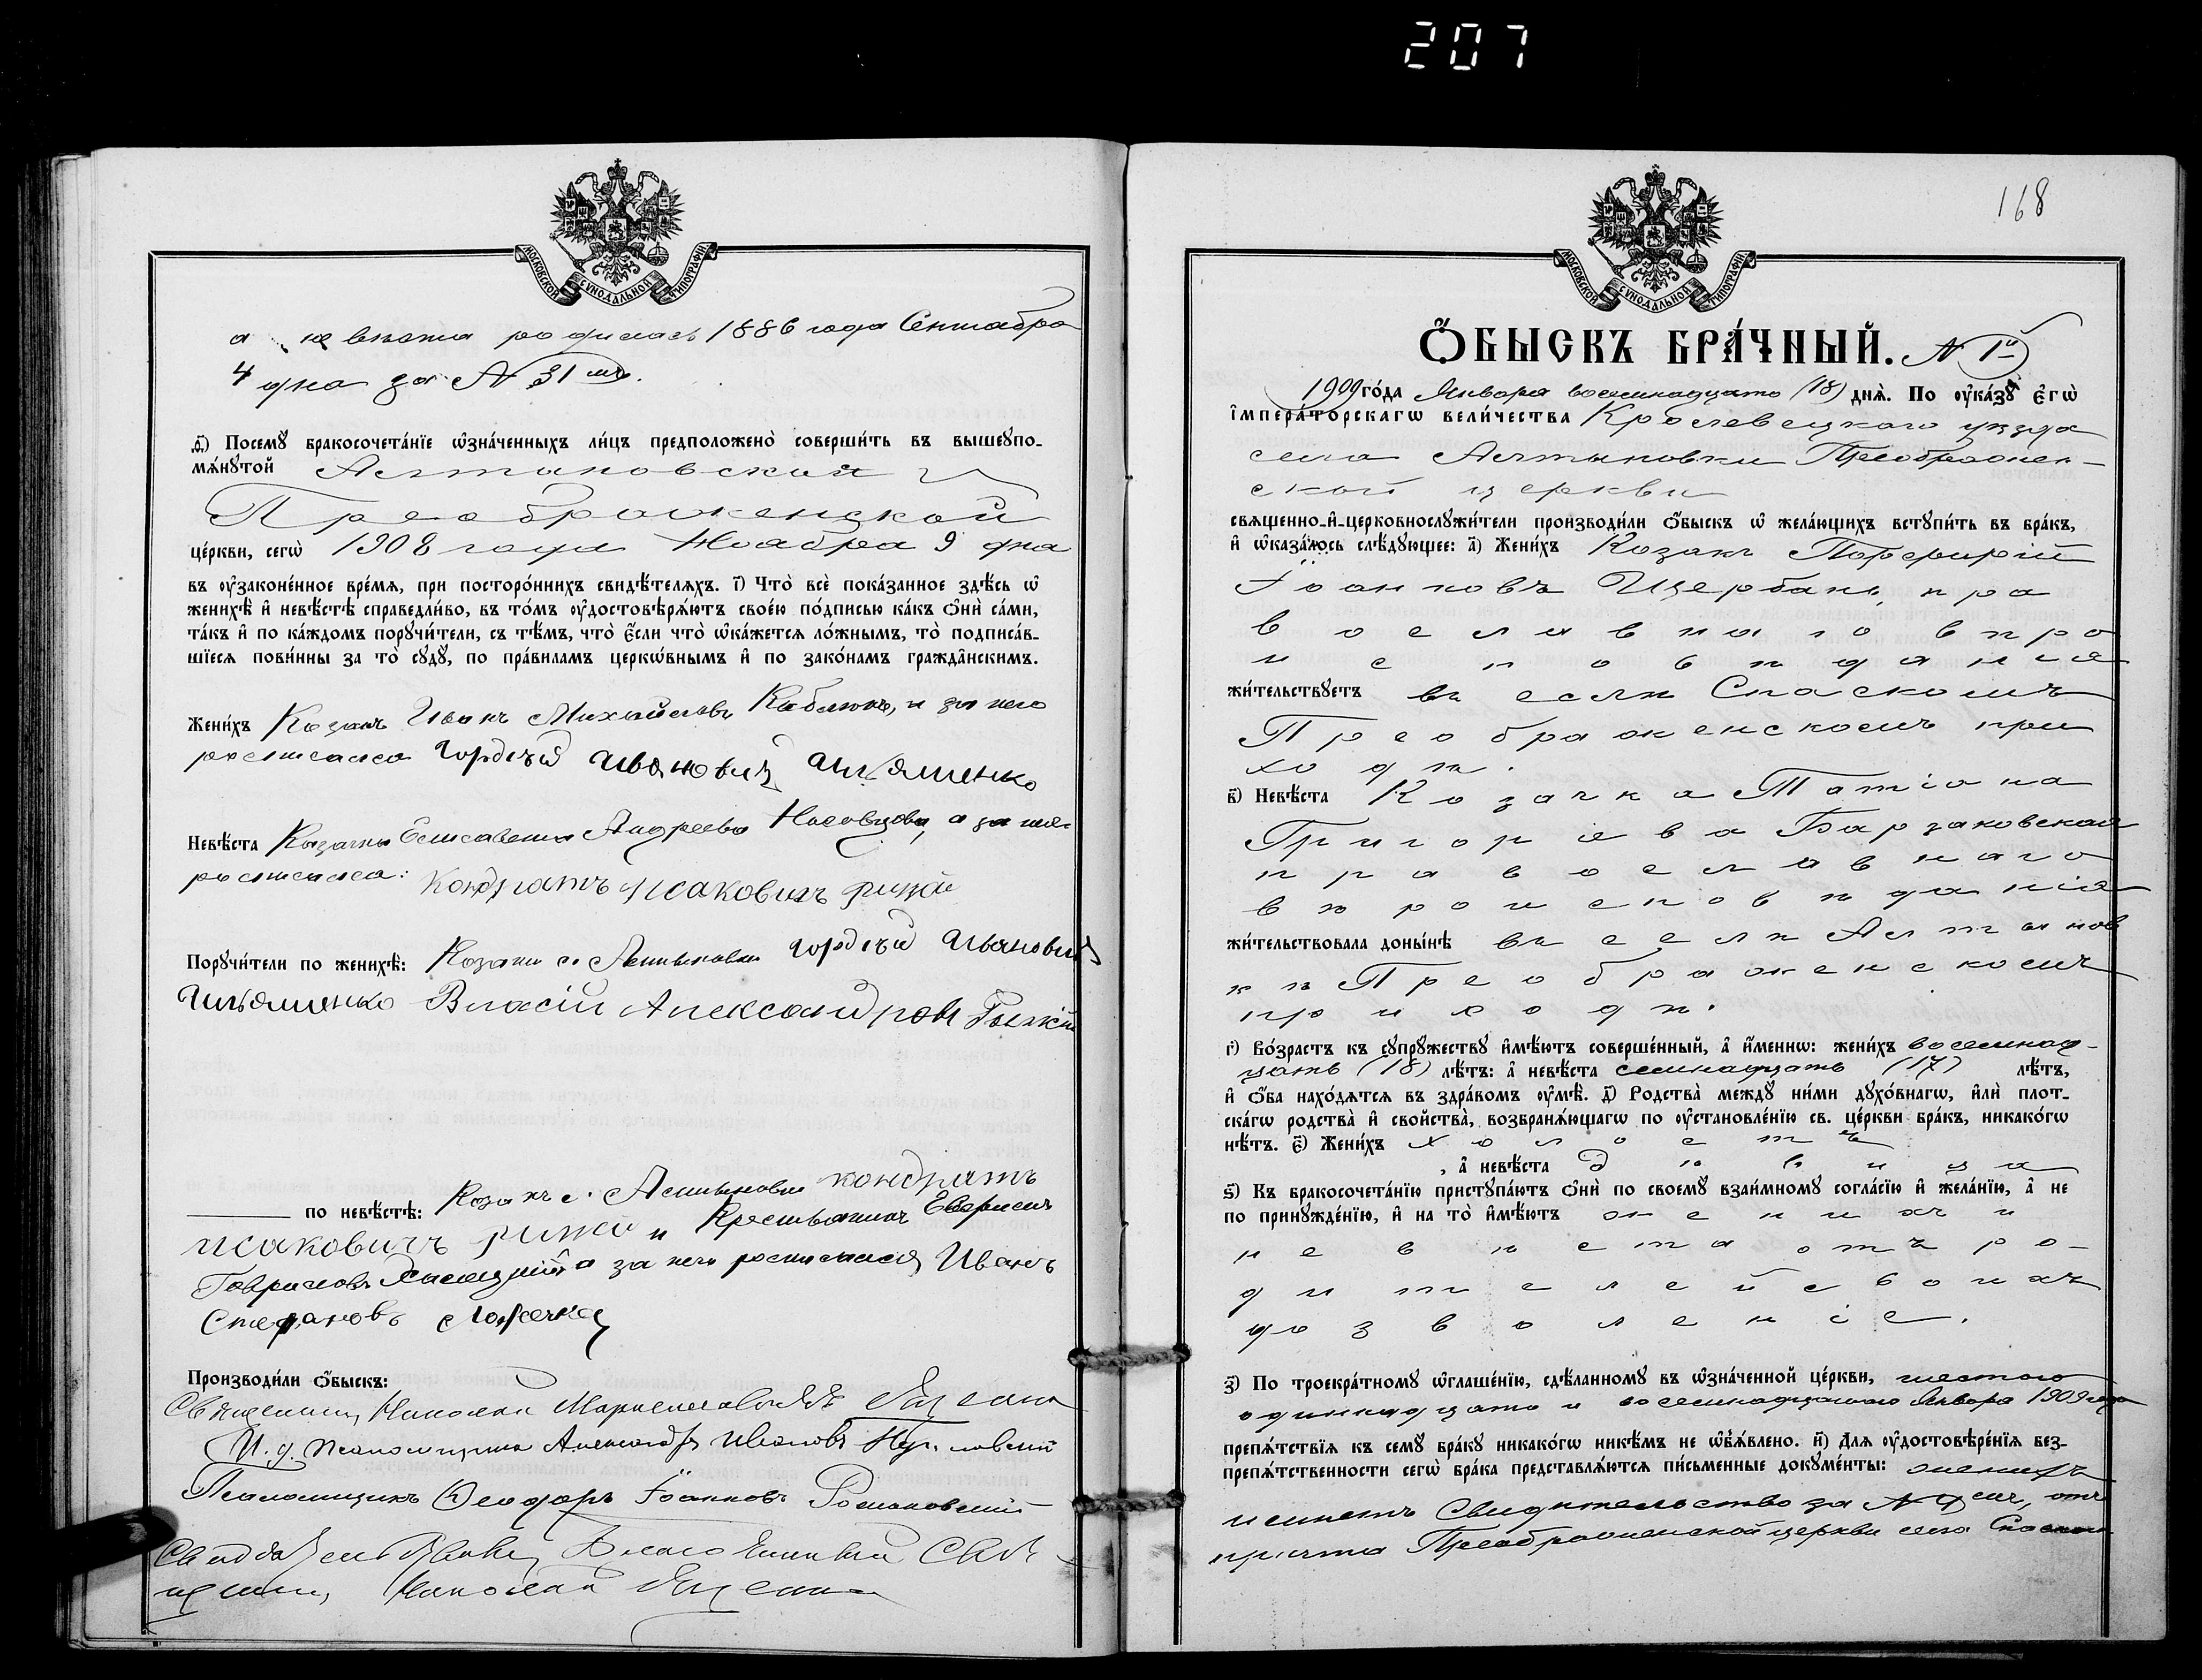 207
МОСКОВСКОЙ СУНОДАЛЬНОЙ ТИПОГРАФІИ
а невѣста родилась 1886 года Сентября
4 дня за № 31 мъ.
д҃і) Посемꙋ бракосочета́нїе ѡ҆зна́ченныхъ ли́цъ предположено̀ соверши́ть въ вышеꙋпо-
мѧ́нꙋтой Алтыновской
Преображенской
це́ркви, сегѡ̀ 1908 года Ноября 9 дня
въ ᲂу҆зако́ненное вре́мѧ, при посторо́ннихъ свидѣ́телѧхъ. і҃) Что̀ всѐ пока́занное здѣ́сь ѡ҆
женихѣ̀ и҆ невѣ́стѣ справедли́во, въ то́мъ ᲂу҆достовѣрѧ́ютъ свое́ю по́дписью ка́къ ѻ҆нѝ са́ми,
та́къ и҆ по ка́ждомъ порꙋчи́тели, съ тѣ́мъ, что̀ є҆́сли что̀ ѡ҆ка́жетсѧ ло́жнымъ, то̀ подписа́в-
шїесѧ пови́нны за то̀ сꙋдꙋ̀, по пра́виламъ церкѡ́внымъ и҆ по зако́намъ гражда̑нскимъ.
Жени́хъ Козакъ Иванъ Михайловъ Каблюкъ, и за него
росписался Гордѣй Ивановичъ Ильяшенко
Невѣ́ста Козачка Елисавета Андреева Носовцова, а за нея
росписался: Кондратъ Исаковичъ Рижій
Порꙋчи́тели по женихѣ̀: Козаки с. Алтыновки Гордѣй Ивановичъ
Ильяшенко Власій Александровъ Рыжій
по невѣ́стѣ: Козакъ с. Алтыновки Кондратъ
Исаковичъ Рижій и Крестьянинъ
Гавриловъ а за него росписался Иванъ
Стефановъ Ложечка
Производи́ли ѻ҆́быскъ:
Священникъ Николай Ященко
И. д. псаломщика Александръ Ивановъ
Псаломщикъ Ѳеодоръ Іоанновъ Романовскій
Благочинный Свя-
щенникъ Николай Ященко
168
МОСКОВСКОЙ СУНОДАЛЬНОЙ ТИПОГРАФІИ
Ѻ҆́БЫСКЪ БРА́ЧНЫЙ. № 1й
1909 го́да Января восемнадцато (18) днѧ̀. По ᲂу҆ка́зꙋ є҆гѡ̀
і҆мпера́торскагѡ вели́чества Кролевецкаго уѣзда
села Алтыновки Преображен-
ской церкви
свѧщенно-и҆-церковнослꙋжи́тели производи́ли ѻ҆́быскъ ѡ҆ жела́ющихъ встꙋпи́ть въ бра́къ,
и҆ ѡ҆каза́лось слѣ́дꙋющее: а҃) Жени́хъ Козакъ Порфирій
Іоанновъ Щербакъ, пра
вославнаго вѣро
исповѣданія
жи́тельствꙋетъ въ селѣ Спаскомъ
Преображенскомъ при
ходѣ.
в҃) Невѣ́ста Козачка Татіана
Григоріева Барзаковская
православнаго
вѣроисповѣданія
жи́тельствовала доны́нѣ въ селѣ Алтынов
кѣ Преображенскомъ
приходѣ.
г҃) Во́зрастъ къ сꙋпрꙋ́жествꙋ и҆мѣ́ютъ соверше́нный, а҆ и҆́меннѡ: жени́хъ восемнад-
цать (18) лѣ́тъ: а҆ невѣ́ста семнадцать (17) лѣ́тъ,
и҆ ѻ҆́ба нахо́дѧтсѧ въ здра́вомъ ᲂу҆мѣ̀. д҃) Родства̀ междꙋ̀ ни́ми дꙋхо́внагѡ, и҆лѝ плот-
ска́гѡ родства̀ и҆ свойства̀, возбранѧ́ющагѡ по ᲂу҆становле́нїю св. це́ркви бра́къ, никако́гѡ
нѣ́тъ. є҃) Жени́хъ холостъ
, а҆ невѣ́ста дѣвица
ѕ҃) Къ бракосочета́нїю пристꙋпа́ютъ ѻ҆нѝ по своемꙋ̀ взаи́мномꙋ согла́сїю и҆ жела́нїю, а҆ не
по принꙋжде́нїю, и҆ на то̀ и҆мѣ́ютъ женихъ и
невѣста отъ ро-
дителей своихъ
дозволеніе.
з҃) По троекра́тномꙋ ѡ҆глаше́нїю, сдѣ́ланномꙋ въ ѡ҆зна́ченной це́ркви, шестого
одинадцато и восемнадцатаго Января 1909 года
препѧ́тствїѧ къ семꙋ̀ бра́кꙋ никако́гѡ никѣ́мъ не ѡ҆б̾ѧ́влено. и҃) Длѧ ᲂу҆достовѣре́нїѧ без-
препѧ́тственности сегѡ̀ бра́ка представлѧ́ютсѧ пи́сьменные докꙋме́нты: женихъ
имѣетъ Свидѣтельство за № отъ
причта Преображенской церкви села Спаскаго